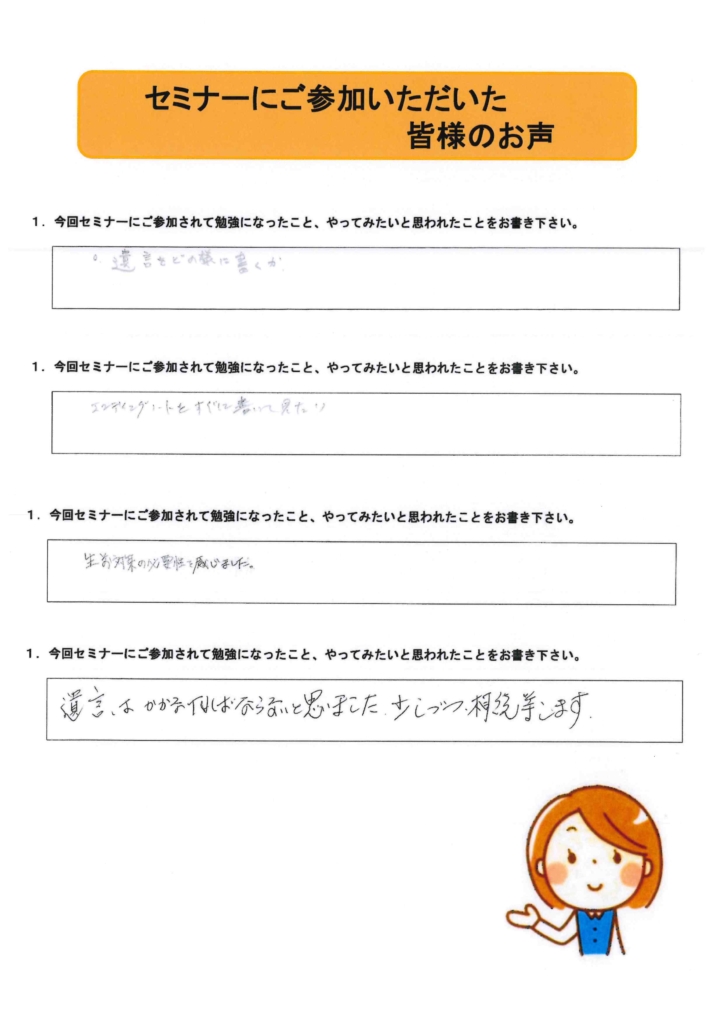 セミナーにご参加いただいた
皆様のお声
1．今回セミナーにご参加されて勉強になったこと、やってみたいと思われたことをお書き下さい。
。遺言をどの様に書くか
1．今回セミナーにご参加されて勉強になったこと、やってみたいと思われたことをお書き下さい。
エンディングノートをすぐに書いて見たい
1．今回セミナーにご参加されて勉強になったこと、やってみたいと思われたことをお書き下さい。
生前対策の必要性を感じました。
1．今回セミナーにご参加されて勉強になったこと、やってみたいと思われたことをお書き下さい。
遺言はかかなければならないと思いました。少しづつ、相続等します。